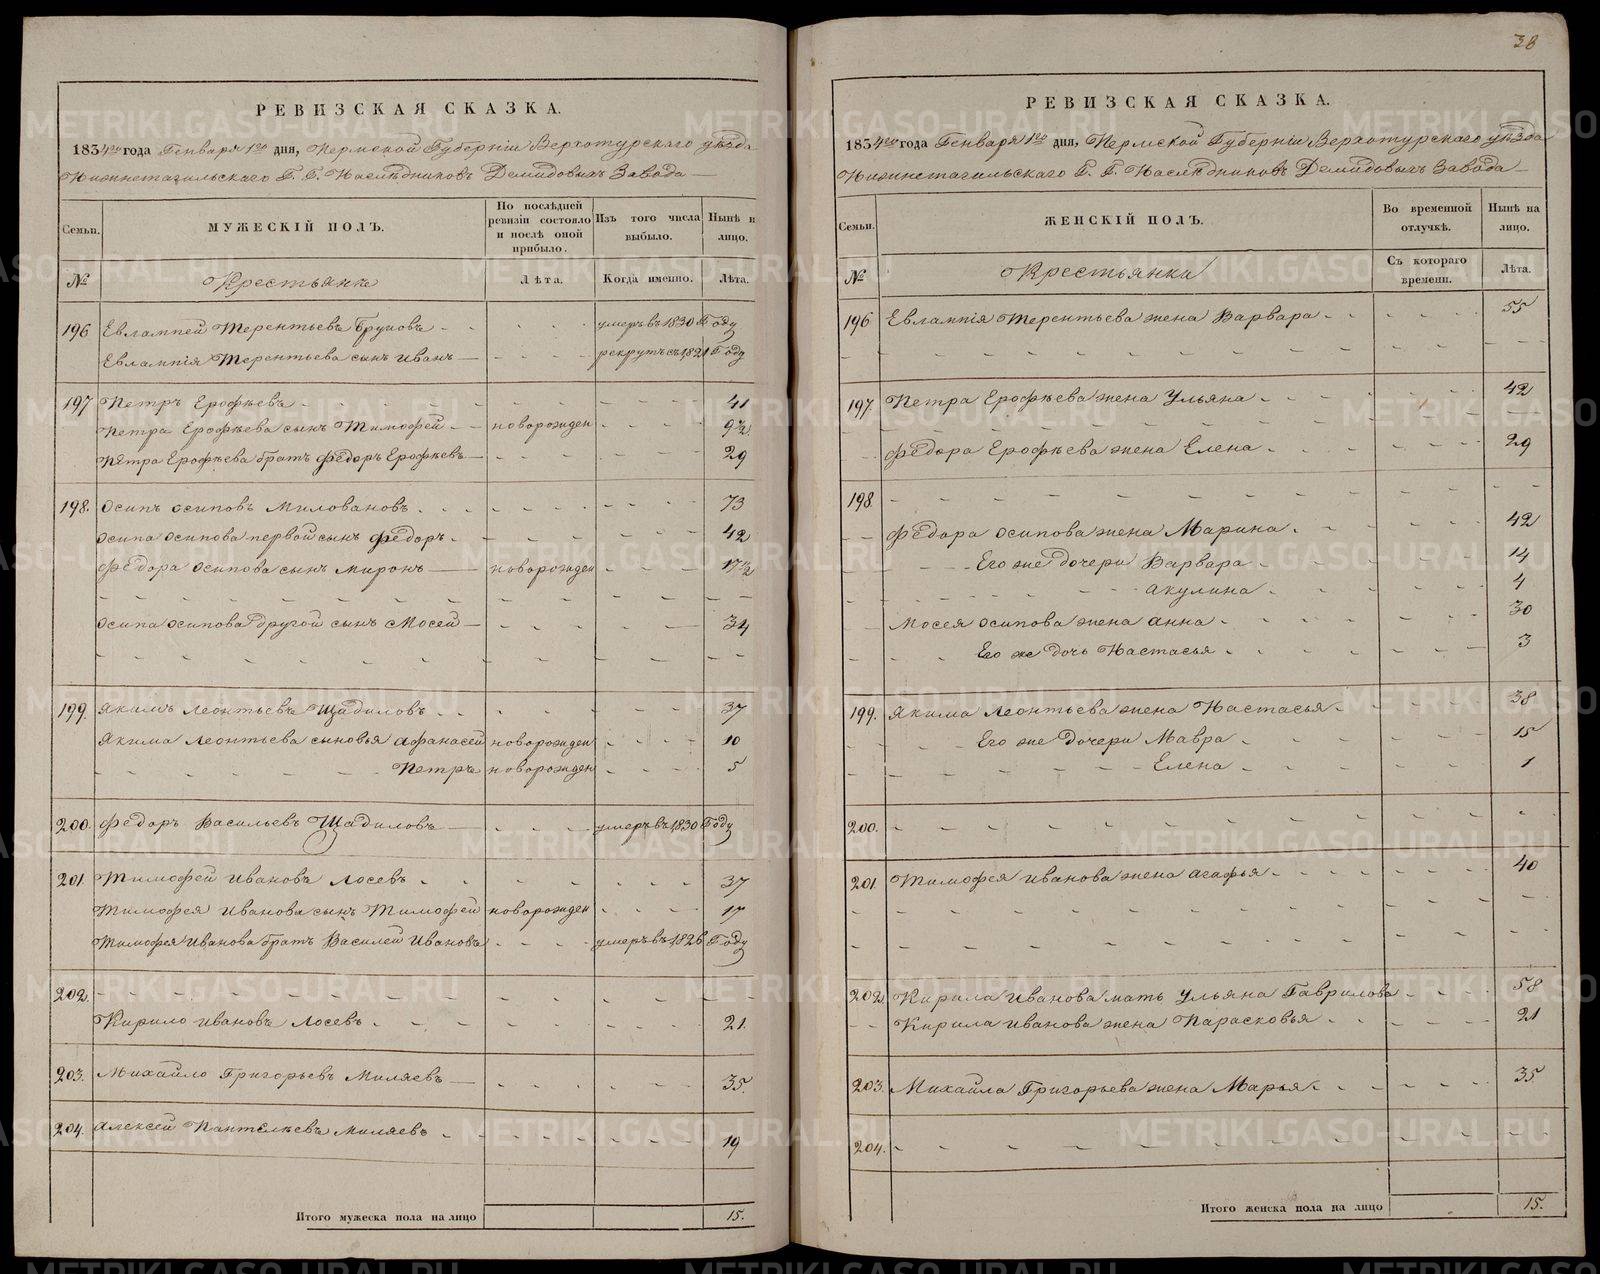 РЕВИЗСКАЯ СКАЗКА.
1834го года Генваря 1го дня, Пермской Губерніи Верхотурскаго уѣзда
Нижнетагильскаго Г. Г. Наслѣдниковъ Демидовыхъ Завода
Семьи. МУЖЕСКІЙ ПОЛЪ. По послѣдней ревизіи состояло и послѣ оной прибыло. Изъ того числа выбыло. Нынѣ на лицо.
№ Крестьянъ Лѣта. Когда именно. Лѣта.
196 Евлампей Терентьевъ умеръ въ 1830 Году
Евлампія Терентьева сынъ Иванъ рекрутъ съ 1821 Году
197 Петръ Ерофѣевъ 41
Петра Ерофѣева сынъ Тимофей новорожден 9½
Петра Ерофѣева братъ Федоръ Ерофѣевъ 29
198. Осипъ Осиповъ Миловановъ 73
Осипа Осипова первой сынъ Федоръ 42
Федора Осипова сынъ Миронъ новорожден 17½
Осипа Осипова другой сынъ Мосей 34
199. Якимъ Леонтьевъ Щадиловъ 37
Якима Леонтьева сыновья Афанасей новорожден 10
Петръ новорожден 5
200. Федоръ Васильевъ Щадиловъ умеръ въ 1830 Году
201. Тимофей Ивановъ Лосевъ 37
Тимофея Иванова сынъ Тимофей новорожден 17
Тимофея Иванова братъ Василей Ивановъ умеръ въ 1826 Году
202.
Кирило Ивановъ Лосевъ 21.
203. Михайло Григорьевъ Миляевъ 35.
204. Алексей Пантелѣевъ Миляевъ 19
Итого мужеска пола на лицо 15.
38
РЕВИЗСКАЯ СКАЗКА.
1834го года Генваря 1го дня, Пермской Губерніи Верхотурскаго уѣзда
Нижнетагильскаго Г. Г. Наслѣдниковъ Демидовыхъ Завода
Семьи. ЖЕНСКІЙ ПОЛЪ. Во временной отлучкѣ. Нынѣ на лицо.
№ Крестьянки Съ котораго времени. Лѣта.
196 Евлампія Терентьева жена Варвара 55
197. Петра Ерофѣева жена Ульяна 42
Федора Ерофѣева жена Елена 29
198.
Федора Осипова жена Марина 42
Его же дочери Варвара 14
Акулина 4
Мосея Осипова жена Анна 30
Его же дочь Настасья 3
199. Якима Леонтьева жена Настасья 38
Его же дочери Мавра 15
Елена 1
200.
201 Тимофея Иванова жена Агафья 40
202 Кирила Иванова мать Ульяна Гаврилова 58
Кирила Иванова жена Парасковья 21
203. Михайла Григорьева жена Марья 35
204.
Итого женска пола на лицо 15.
METRIKI.GASO-URAL.RU